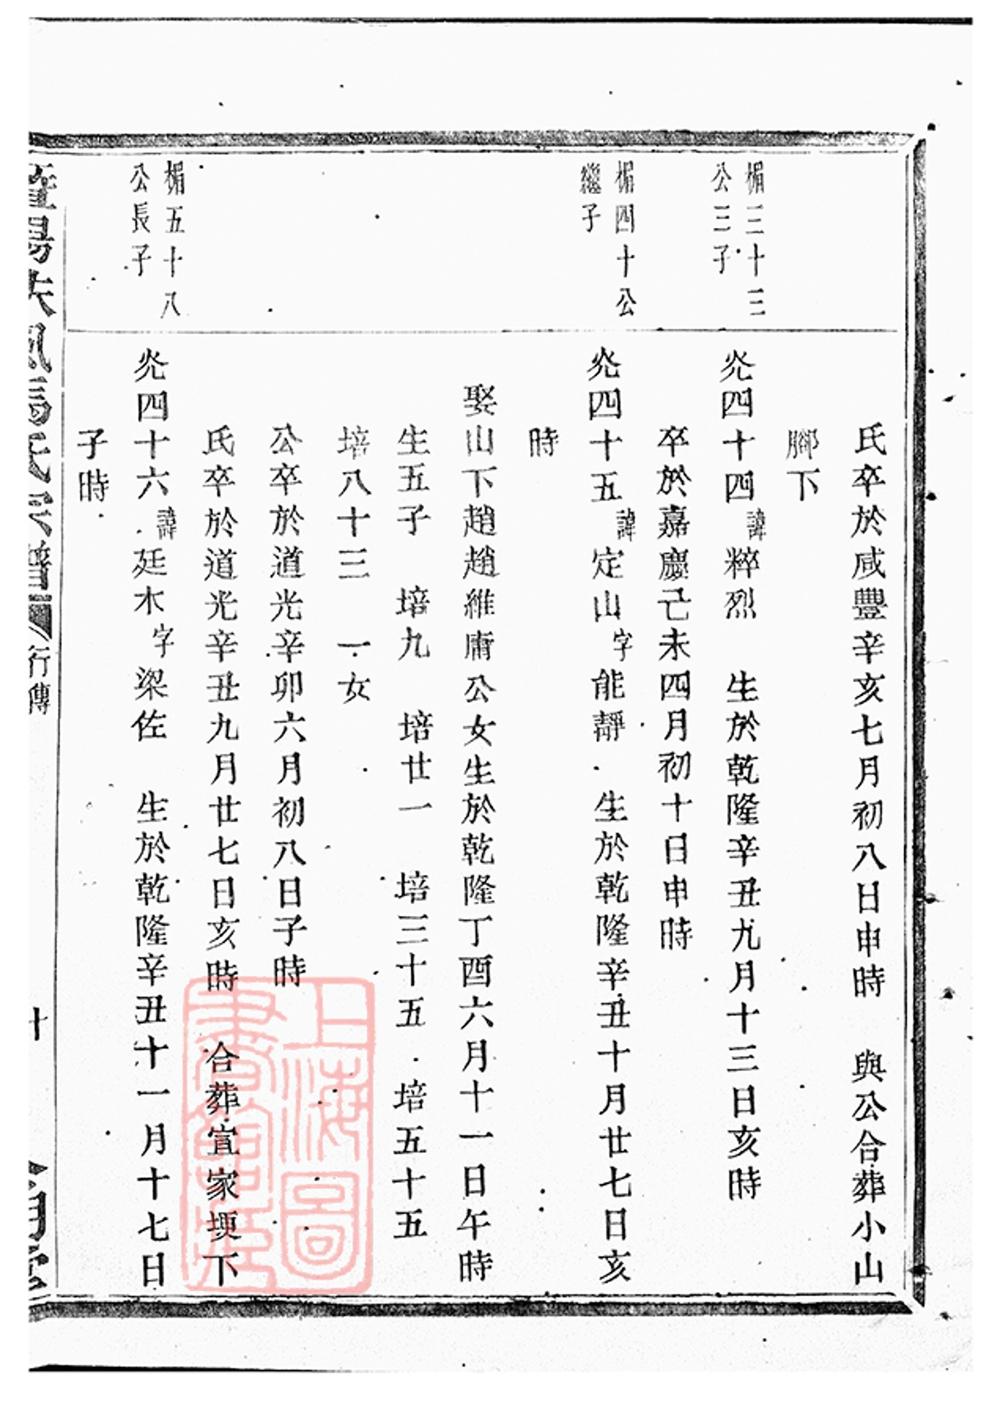 氏卒於咸豐辛亥七月初八日申時 與公合葬小山
腳下
楣三十三
公三子
炛四十四諱粹烈 生於乾隆辛丑九月十三日亥時
卒於嘉慶己未四月初十日申時
楣四十公
繼子
炛四十五諱定山字能靜 生於乾隆辛丑十月廿七日亥
時
娶山下趙趙維庸公女生於乾隆丁酉六月十一日午時
生五子 培九 培廿一 培三十五 培五十五
培八十三 一女
公卒於道光辛卯六月初八日子時
氏卒於道光辛丑九月廿七日亥時 合葬宣家埂下
楣五十八
公長子
炛四十六諱廷木字梁佐 生於乾隆辛丑十一月十七日
子時
暨陽扶風馬氏宗譜
行傳
十
上海圖
書館藏